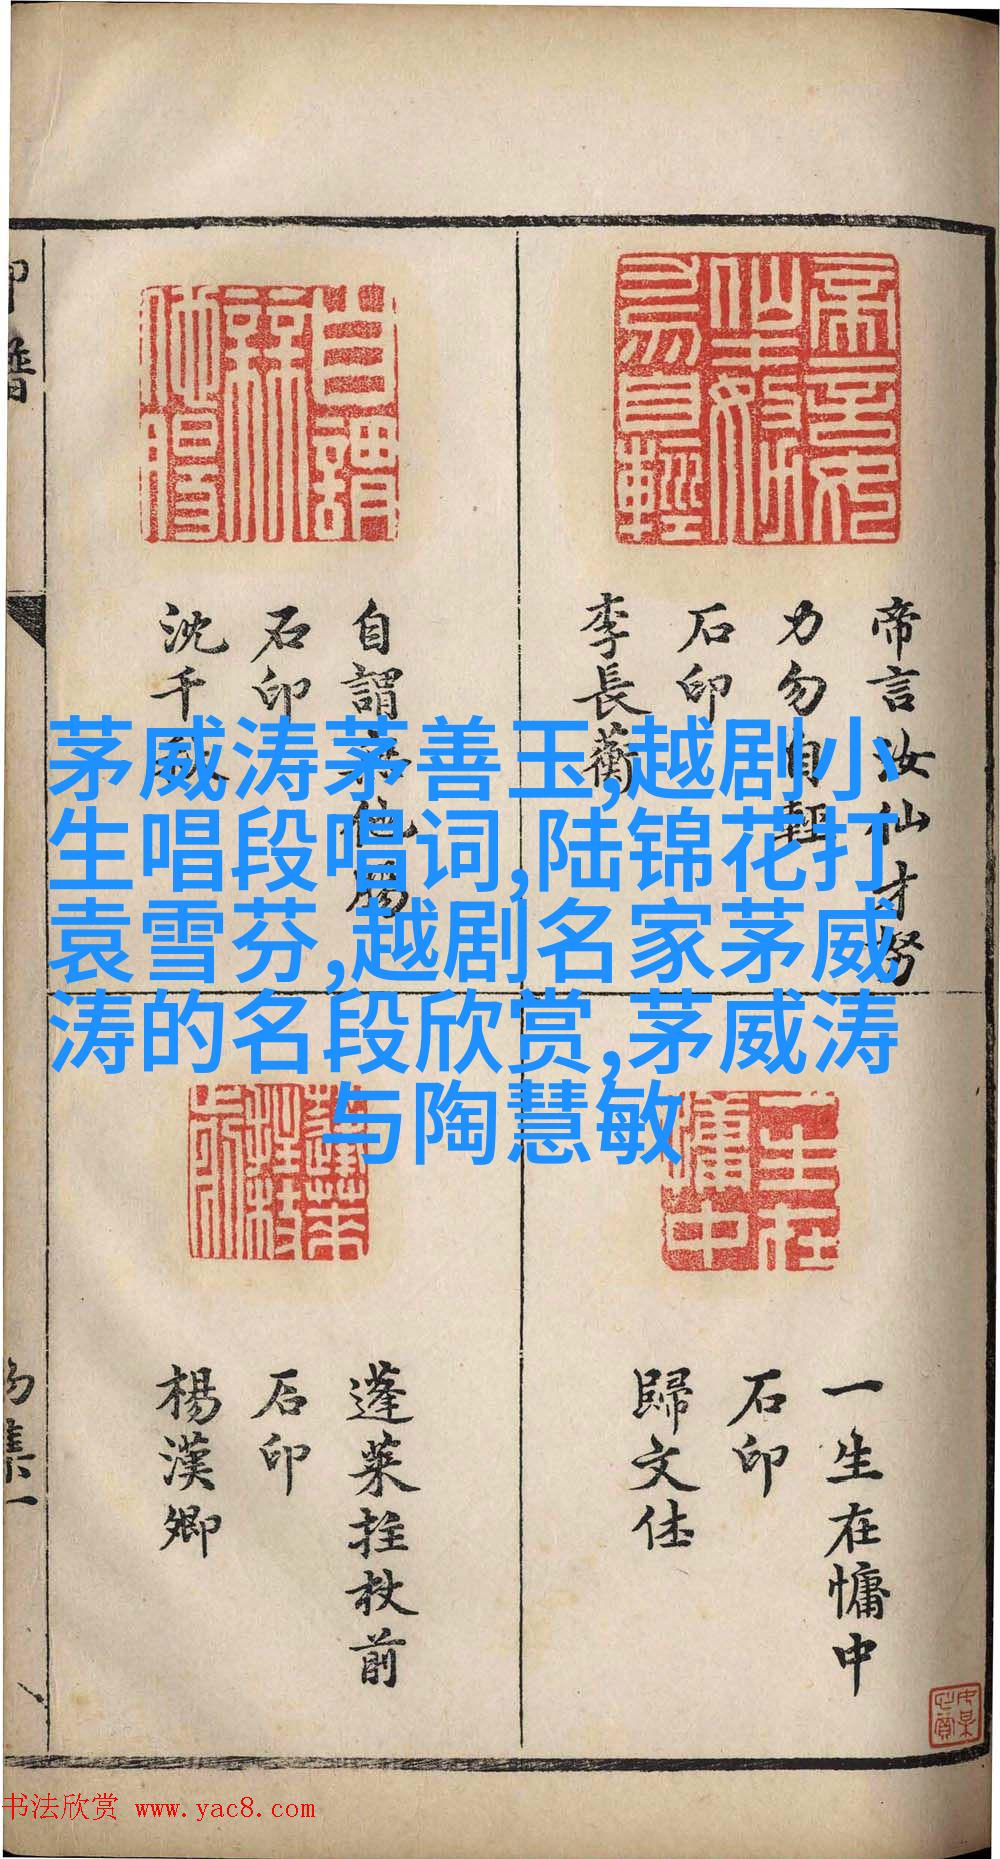 茅威涛茅善玉,越剧小
生唱段唱词,陆锦花打
袁雪芬,越剧名家茅威
涛的名段欣赏,茅威涛
与陶慧敏
帝言汝仙才努
力勿自輕
石印
李長蘅
自謂
石印
沈千
一生在慵中
石印
歸文休
蓬萊拄杖前
石印
楊漢卿
初集一
书法欣赏 www.yac8.com